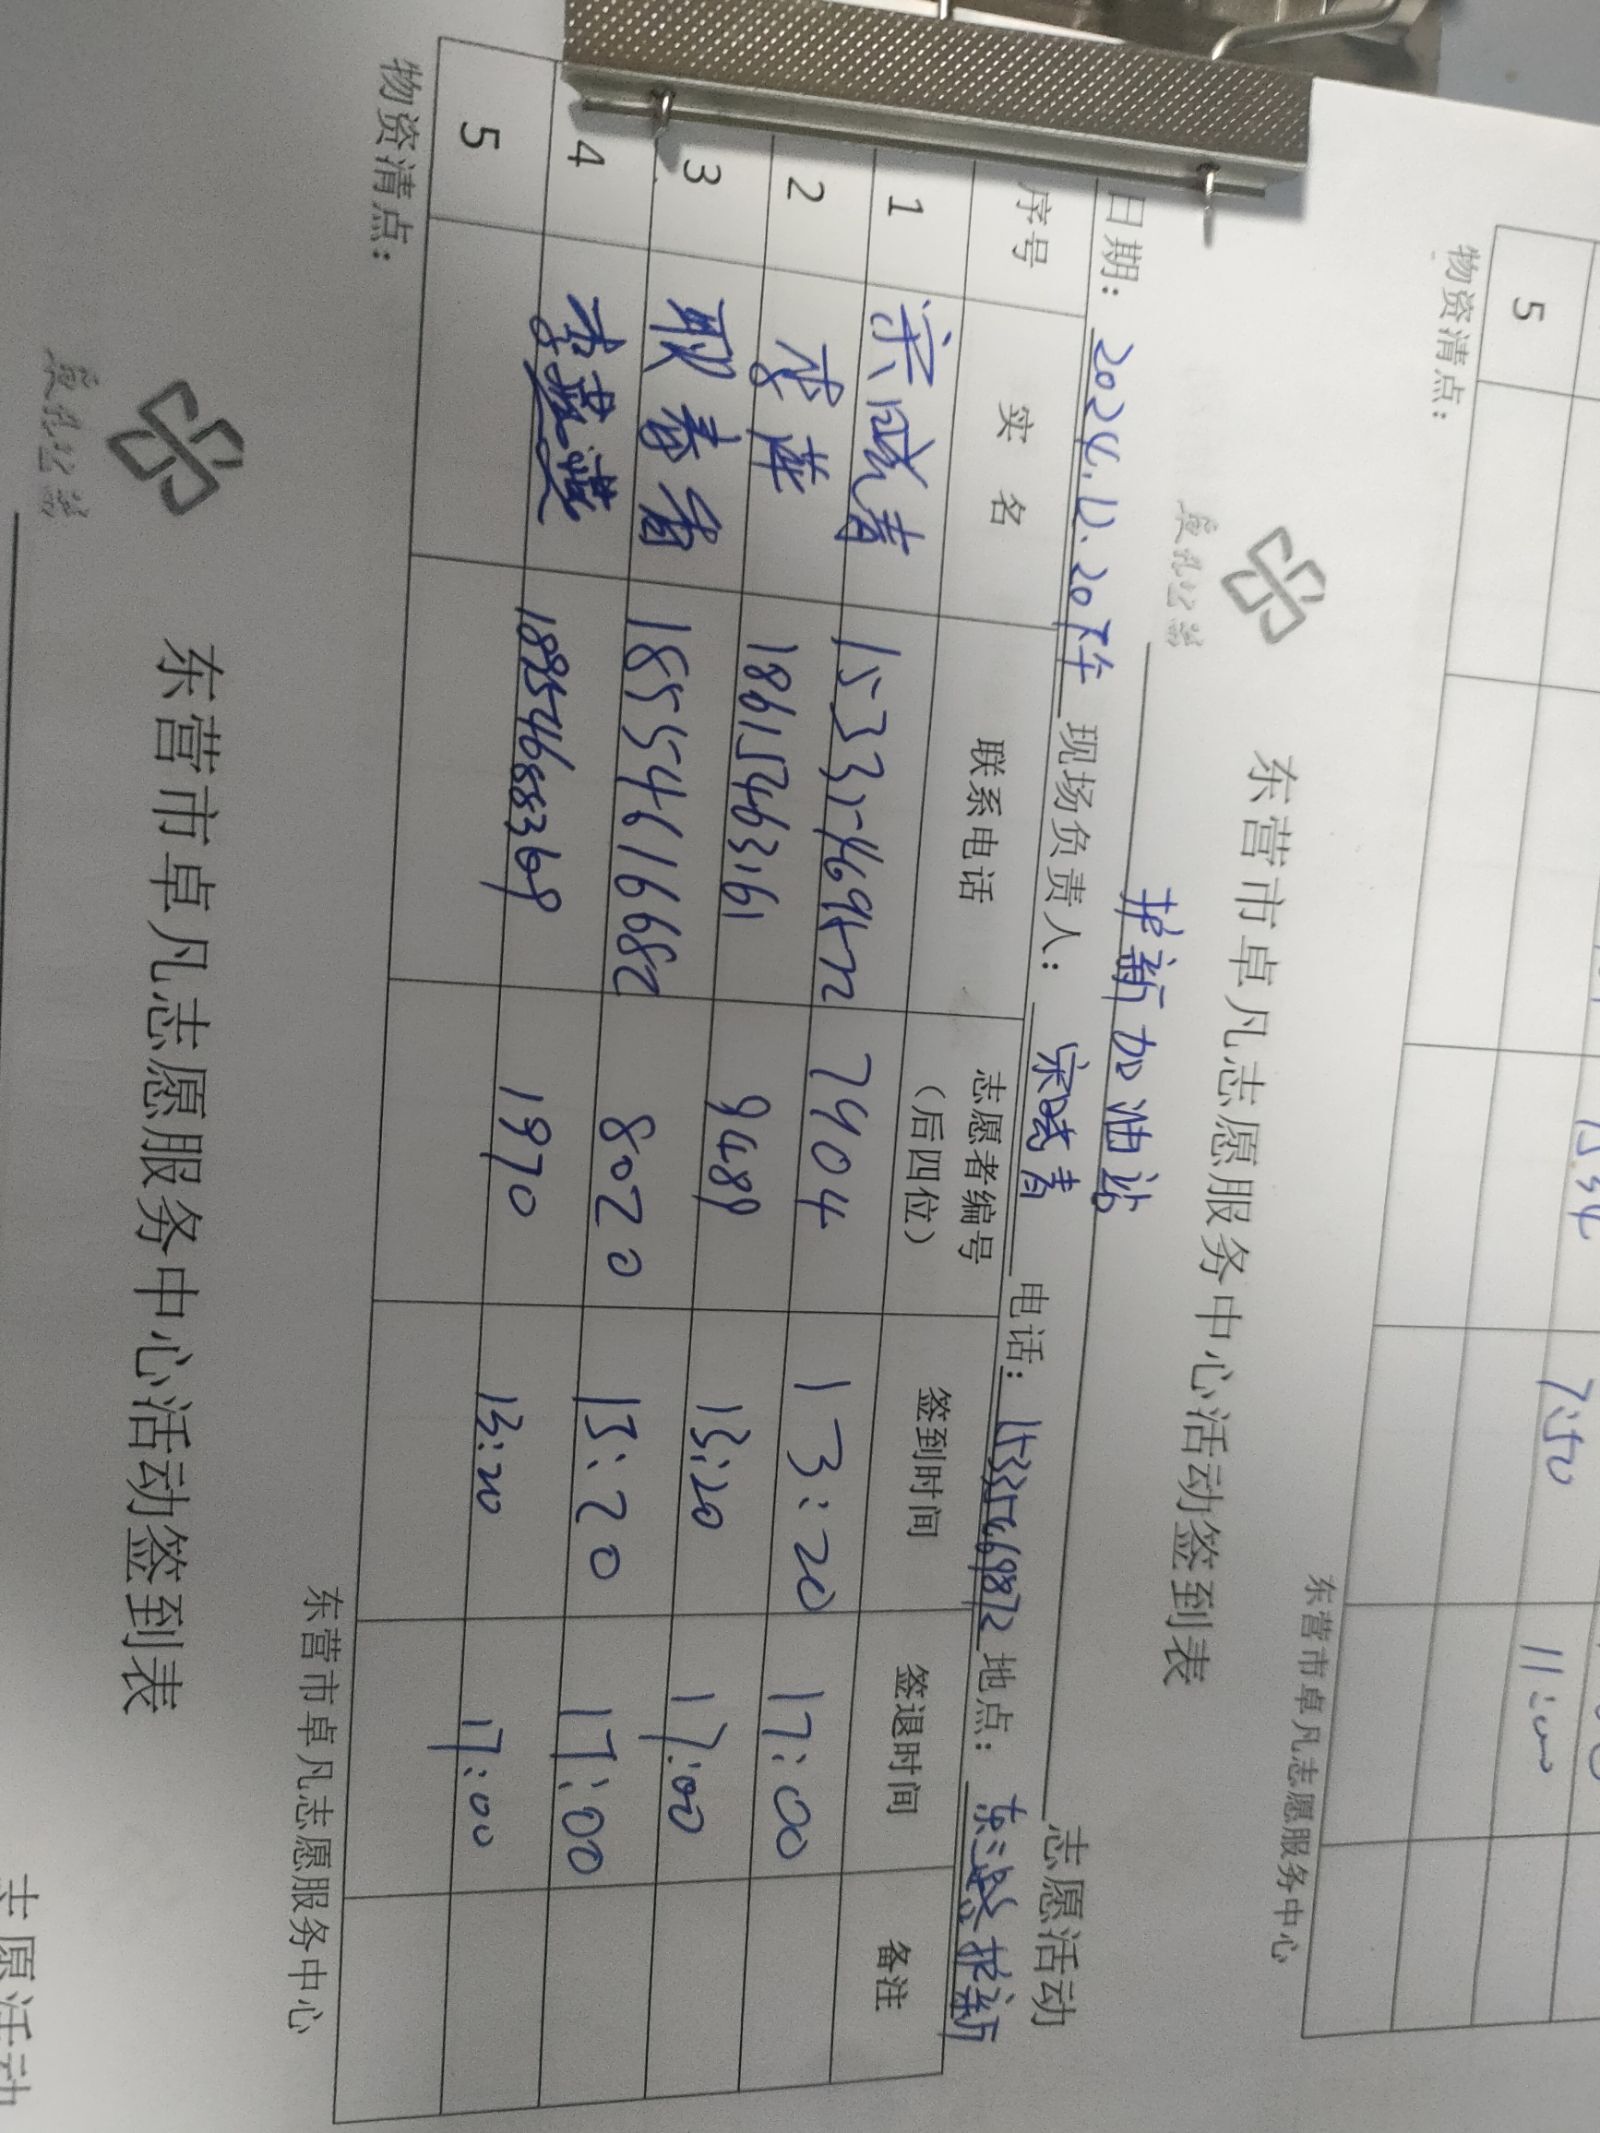 5
物资清点：
东营市卓凡志愿服务中心
7:50
11:00
东营市卓凡志愿服务中心活动签到表
加油站 志愿活动
日期：2024.12.20下午 现场负责人：宋晓青 电话：15335469872 地点：
序号 实 名 联系电话 志愿者编号（后四位） 签到时间 签退时间 备注
1 宋晓青 15335469872 7404 13:20 17:00
2 李燕 18615463161 9489 13:20 17:00
3 春省 18554616682 8020 13:20 17:00
4 李燕燕 18954688369 1970 13:20 17:00
5
物资清点：
东营市卓凡志愿服务中心
东营市卓凡志愿服务中心活动签到表
志愿活动